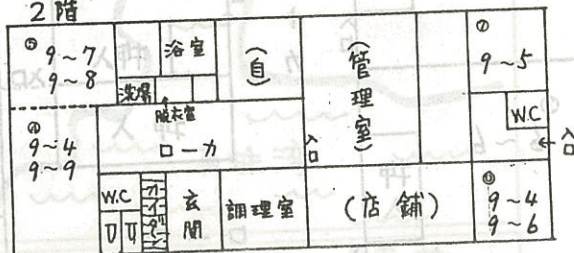 2階
⑤
9～7
9～8
浴室
洗場
脱衣室
(自)
(管理室)
⑦
9～5
W.C
入口
④
9～4
9～9
ローカ
入口
W.C
玄関
調理室
(店舗)
9～4
9～6